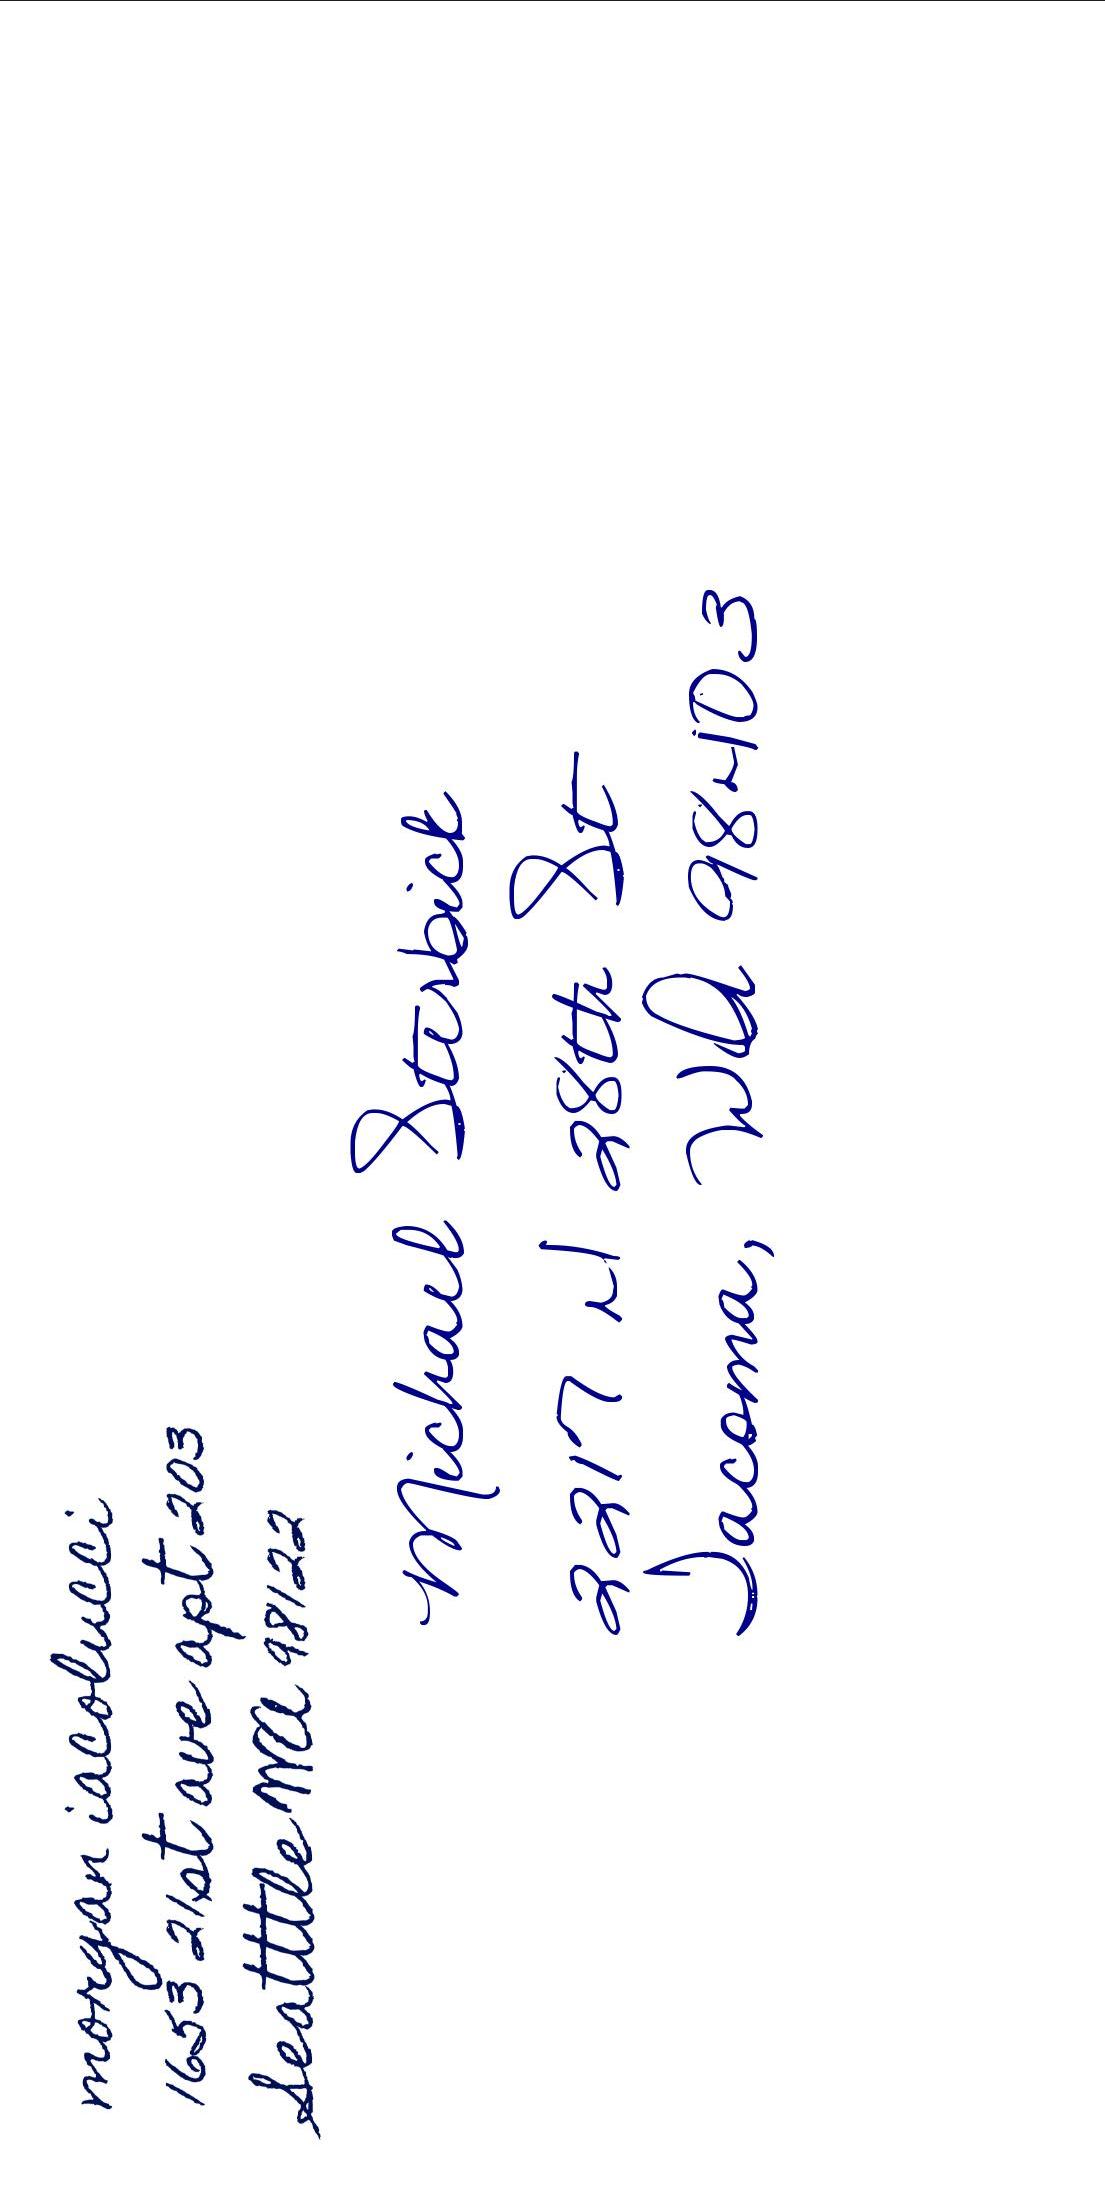 morgan iacolucci
1653 21st ave apt 203
Seattle WA 98122
Michael Sterbick
2217 N 28th St
Tacoma, WA 98403